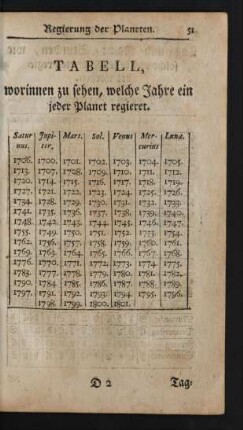 Regierung der Planeten. 51
TABELL,
worinnen zu sehen, welche Jahre ein
jeder Planet regieret.
Satur Jupi- Mars. Sol. Venus Mer- Luna.
nus. ter, curius
1706. 1700. 1701. 1702. 1703. 1704. 1705.
1713. 1707. 1708. 1709. 1710. 1711. 1712.
1720. 1714. 1715. 1716. 1717. 1718. 1719.
1727. 1721. 1722. 1723. 1724. 1725. 1726.
1734. 1728. 1729. 1730. 1731. 1732. 1733.
1741. 1735. 1736. 1737. 1738. 1739. 1740.
1748. 1742. 1743. 1744. 1745. 1746. 1747.
1755. 1749. 1750. 1751. 1752. 1753. 1754.
1762. 1756. 1757. 1758. 1759. 1760. 1761.
1769. 1763. 1764. 1765. 1766. 1767. 1768.
1776. 1770. 1771. 1772. 1773. 1774. 1775.
1783. 1777. 1778. 1779. 1780. 1781. 1782.
1790. 1784. 1785. 1786. 1787. 1788. 1789.
1797. 1791. 1792. 1793. 1794. 1795. 1796.
1798. 1799. 1800. 1801.
D 2 Tag-